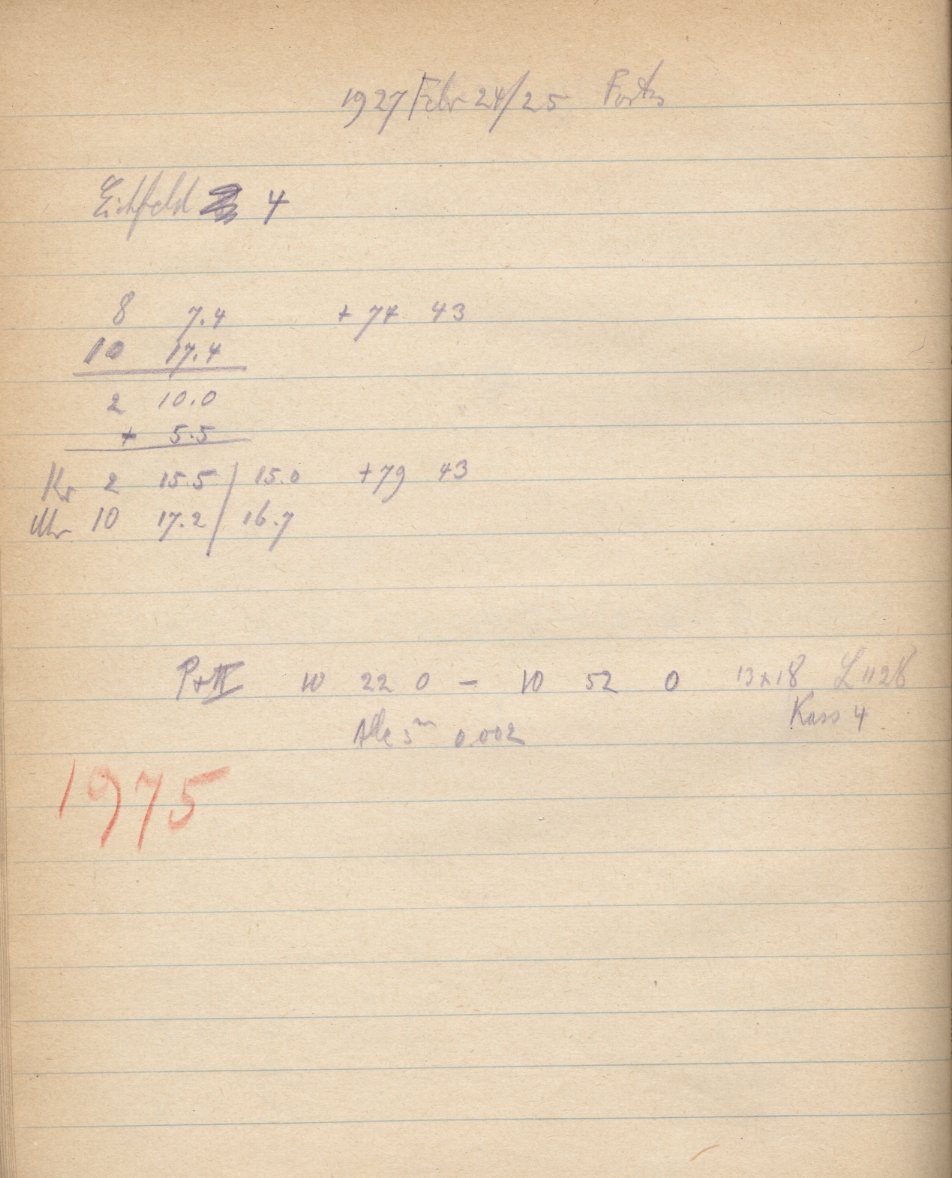 1927 Febr 24/25
Eichfeld 4
8 7.4 + 74 43
10 17.4
2 10.0
+ 5.5
Kr 2 15.5 / 15.0 +79 43
Uhr 10 17.2 / 16.7
10 22 0 – 10 52 0 13x18 L 1128
Alle 5m 0.002 Kass 4
1975